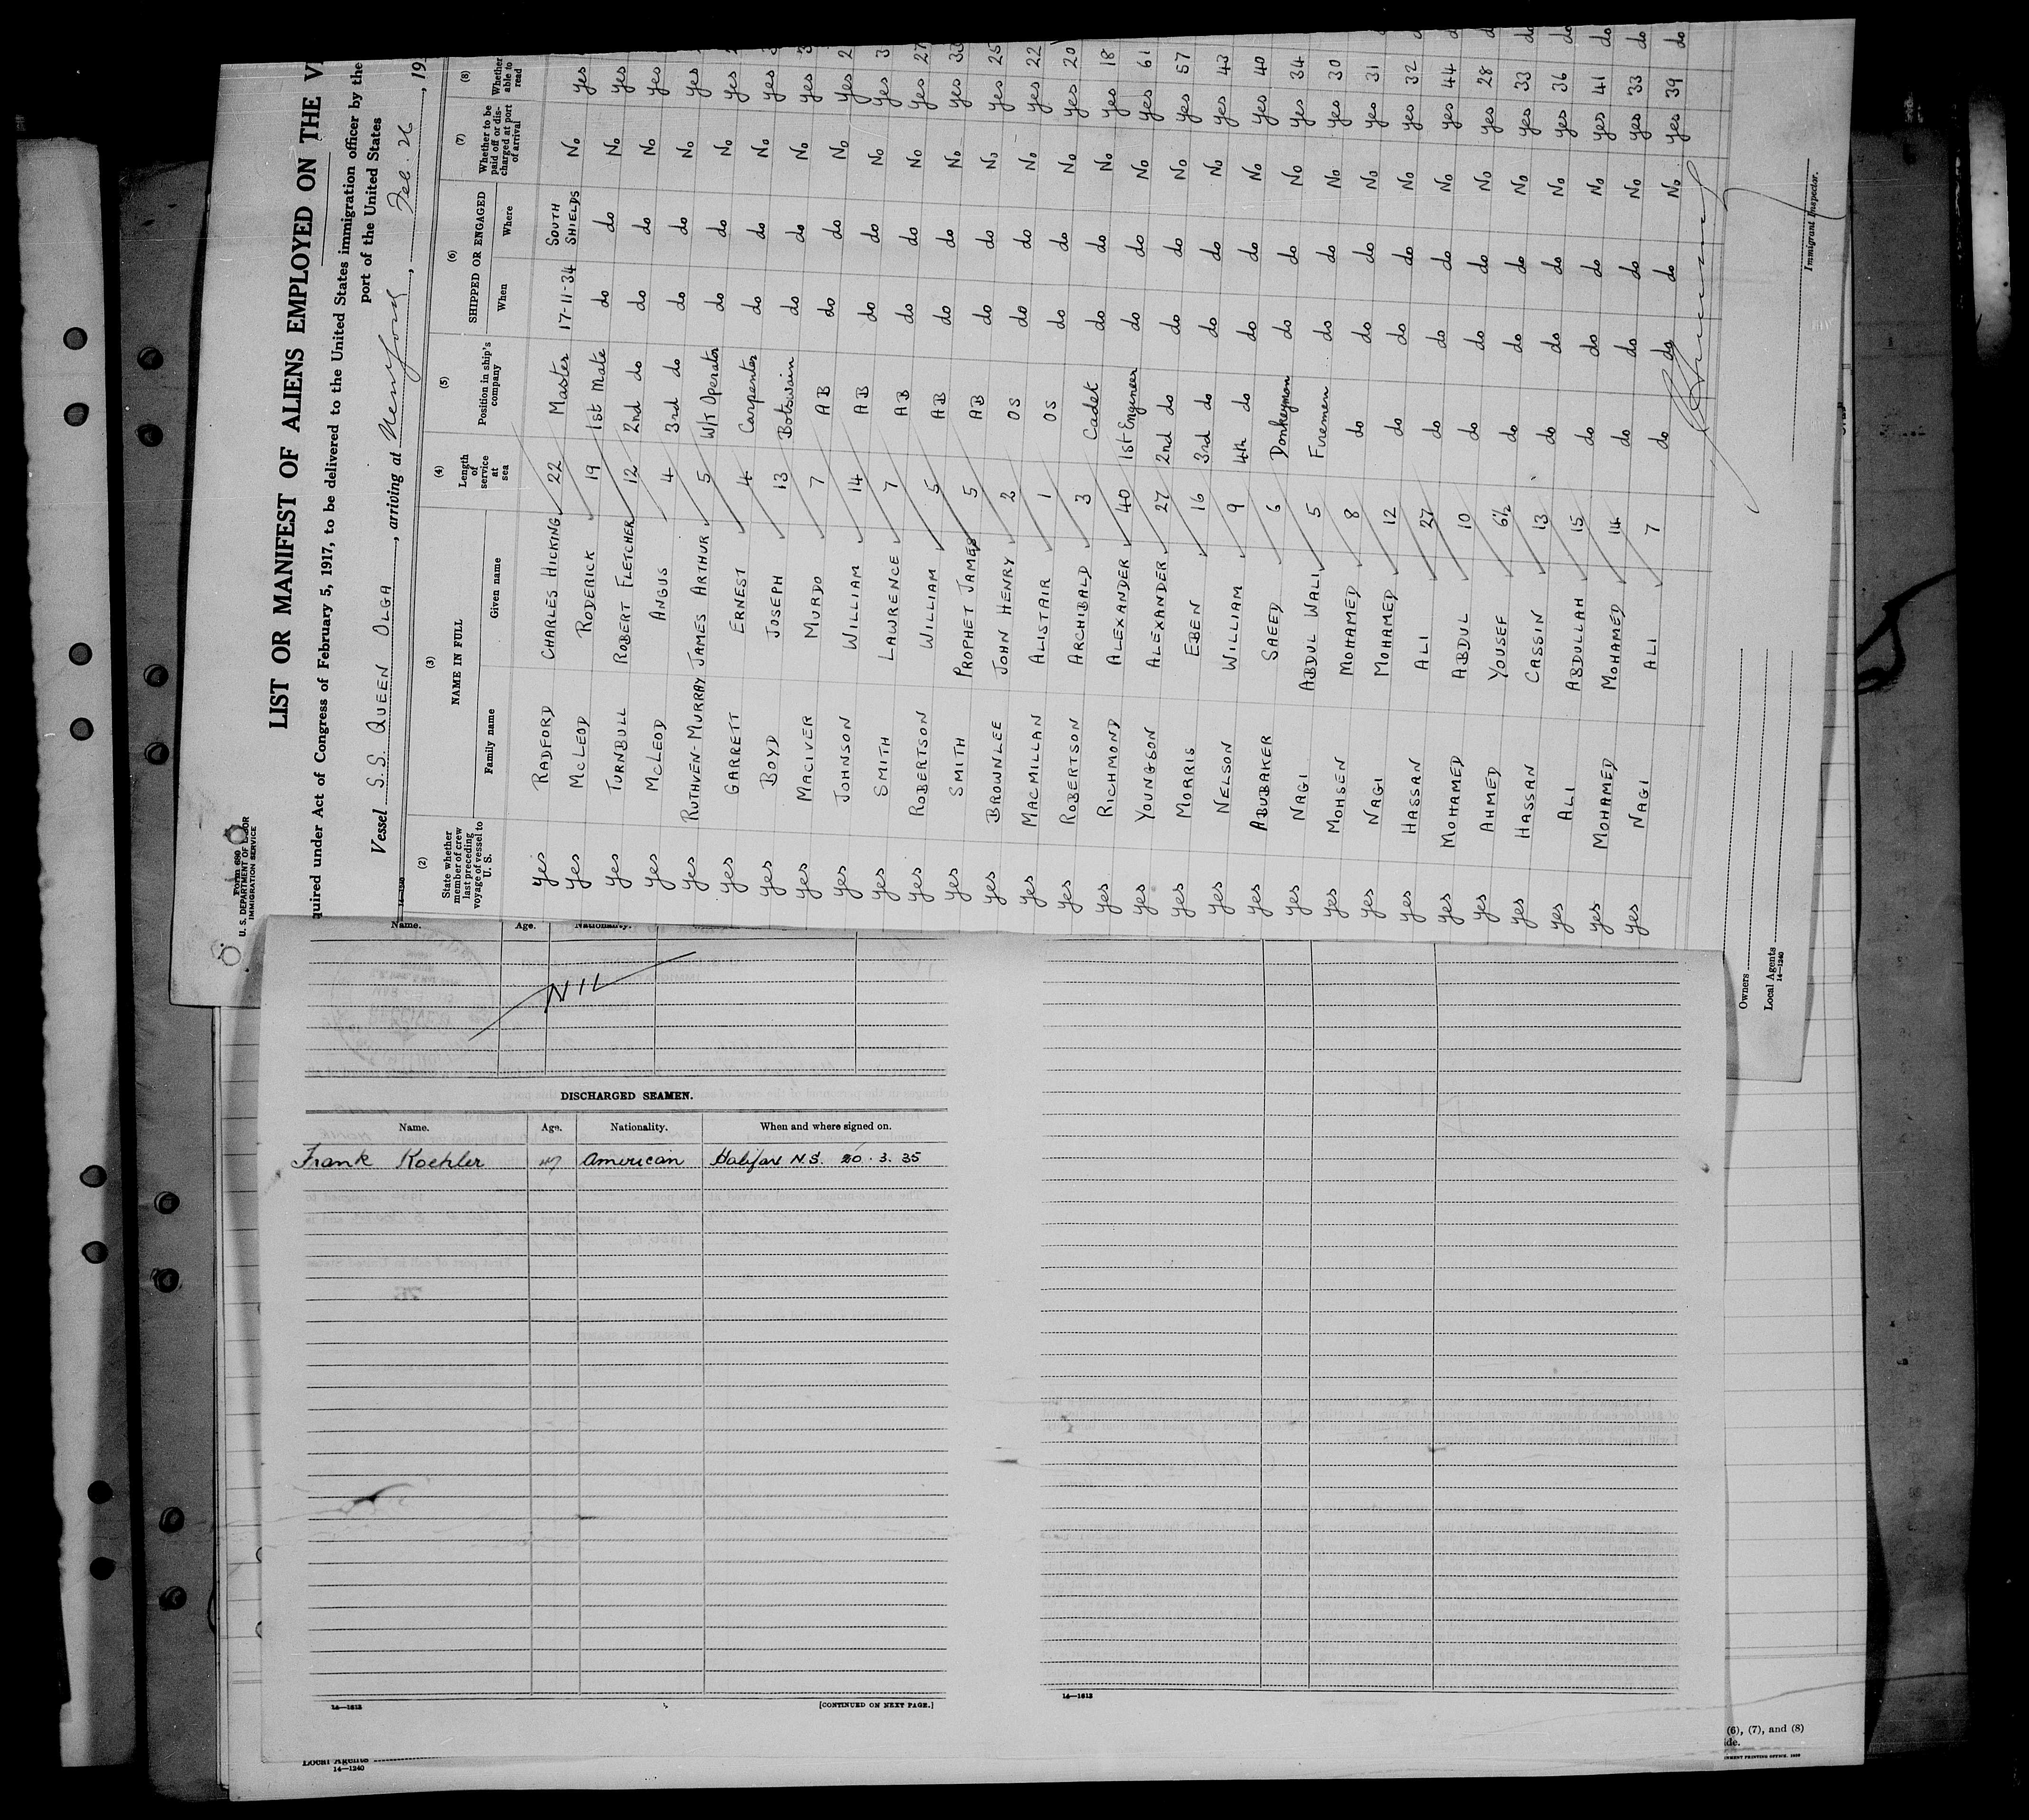 Form 680
U. S. DEPARTMENT OF LABOR
IMMIGRATION SERVICE
LIST OR MANIFEST OF ALIENS EMPLOYED ON THE
quired under Act of Congress of February 5, 1917, to be delivered to the United States immigration officer by the
port of the United States
Vessel S.S. QUEEN OLGA, arriving at, Feb. 26, 19
14—1240
(2) (3) (4) (5) (6) (7) (8)
State whether member of crew last preceding voyage of vessel to U. S. NAME IN FULL Length of service at sea Position in ship's company SHIPPED OR ENGAGED Whether to be paid off or discharged at port of arrival Whether able to read
Family name Given name When Where
yes RADFORD CHARLES HICKING 22 Master 17-11-34 SOUTH SHIELDS No yes
yes McLEOD RODERICK 19 1st Mate do do No yes
yes TURNBULL ROBERT FLETCHER 12 2nd do do do No yes
yes McLEOD ANGUS 4 3rd do do do No yes
yes RUTHVEN-MURRAY JAMES ARTHUR 5 W/T Operator do do No yes
yes GARRETT ERNEST 4 Carpenter do do No yes
yes BOYD JOSEPH 13 Botswain do do No yes
yes MACIVER MURDO 7 AB do do No yes
yes JOHNSON WILLIAM 14 AB do do No yes
yes SMITH LAWRENCE 7 AB do do No yes 27
yes ROBERTSON WILLIAM 5 AB do do No yes 33
yes SMITH PROPHET JAMES 5 AB do do No yes 25
yes BROWNLEE JOHN HENRY 2 OS do do No yes 22
yes MACMILLAN ALISTAIR 1 OS do do No yes 20
yes ROBERTSON ARCHIBALD 3 Cadet do do No yes 18
yes RICHMOND ALEXANDER 40 1st Engineer do do No yes 61
yes YOUNGSON ALEXANDER 27 2nd do do do No yes 57
yes MORRIS EBEN 16 3rd do do do No yes 43
yes NELSON WILLIAM 9 4th do do do No yes 40
yes ABUBAKER SAEED 6 Donkeyman do do No yes 34
yes NAGI ABDUL WALI 5 Firemen do do No yes 30
yes MOHSEN MOHAMED 8 do do do No yes 31
yes NAGI MOHAMED 12 do do do No yes 32 do
yes HASSAN ALI 27 do do do No yes 44 do
yes MOHAMED ABDUL 10 do do do No yes 28 do
yes AHMED YOUSEF 6½ do do do No yes 33 do
yes HASSAN CASSIN 13 do do do No yes 36 do
yes ALI ABDULLAH 15 do do do No yes 41 do
yes MOHAMED MOHAMED 14 do do do No yes 33 do
yes NAGI ALI 7 do do do No yes 39 do
Immigrant Inspector.
Owners
Local Agents
14—1240
Name. Age. Nationality.
NIL
DISCHARGED SEAMEN.
Name. Age. Nationality. When and where signed on.
Frank Koehler American Halifax N.S. 20.3.35
14—1613
[CONTINUED ON NEXT PAGE.]
14—1613
(6), (7), and (8)
ide.
Local Agents
14—1240